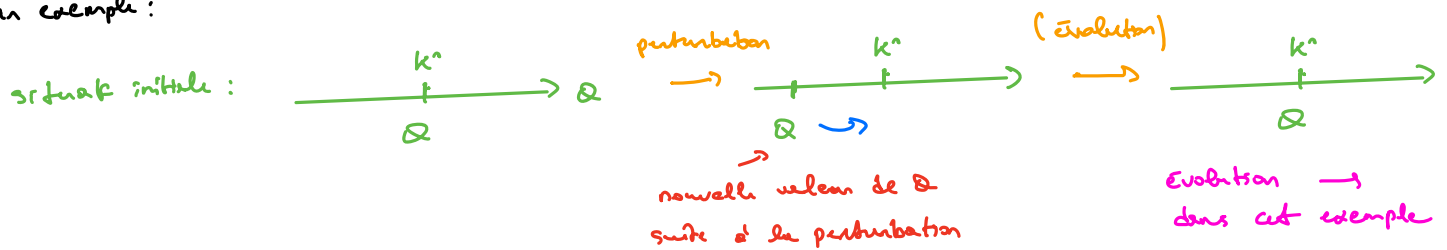 un exemple :
situat° initiale :
K°
Q
Q
perturbation
K°
Q
nouvelle valeur de Q
suite à la perturbation
(évolution)
K°
Q
Évolution →
dans cet exemple